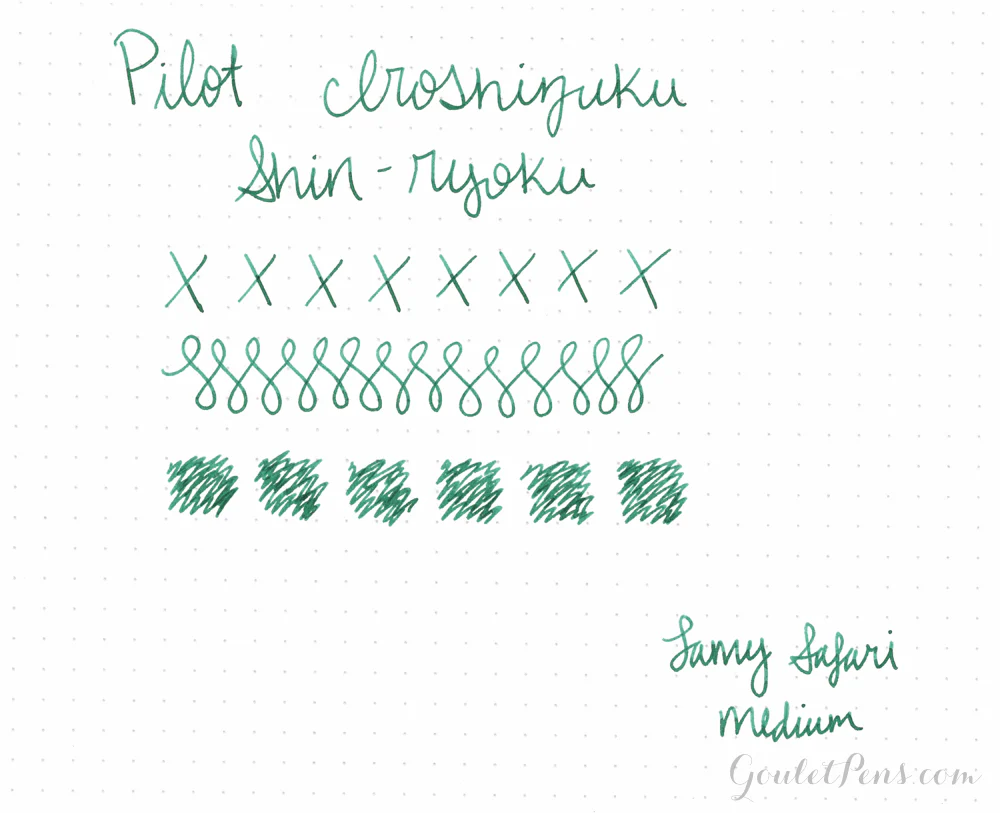 Pilot Iroshizuku
Shin-ryoku
X X X X X X X X
Lamy Safari
medium
GouletPens.com